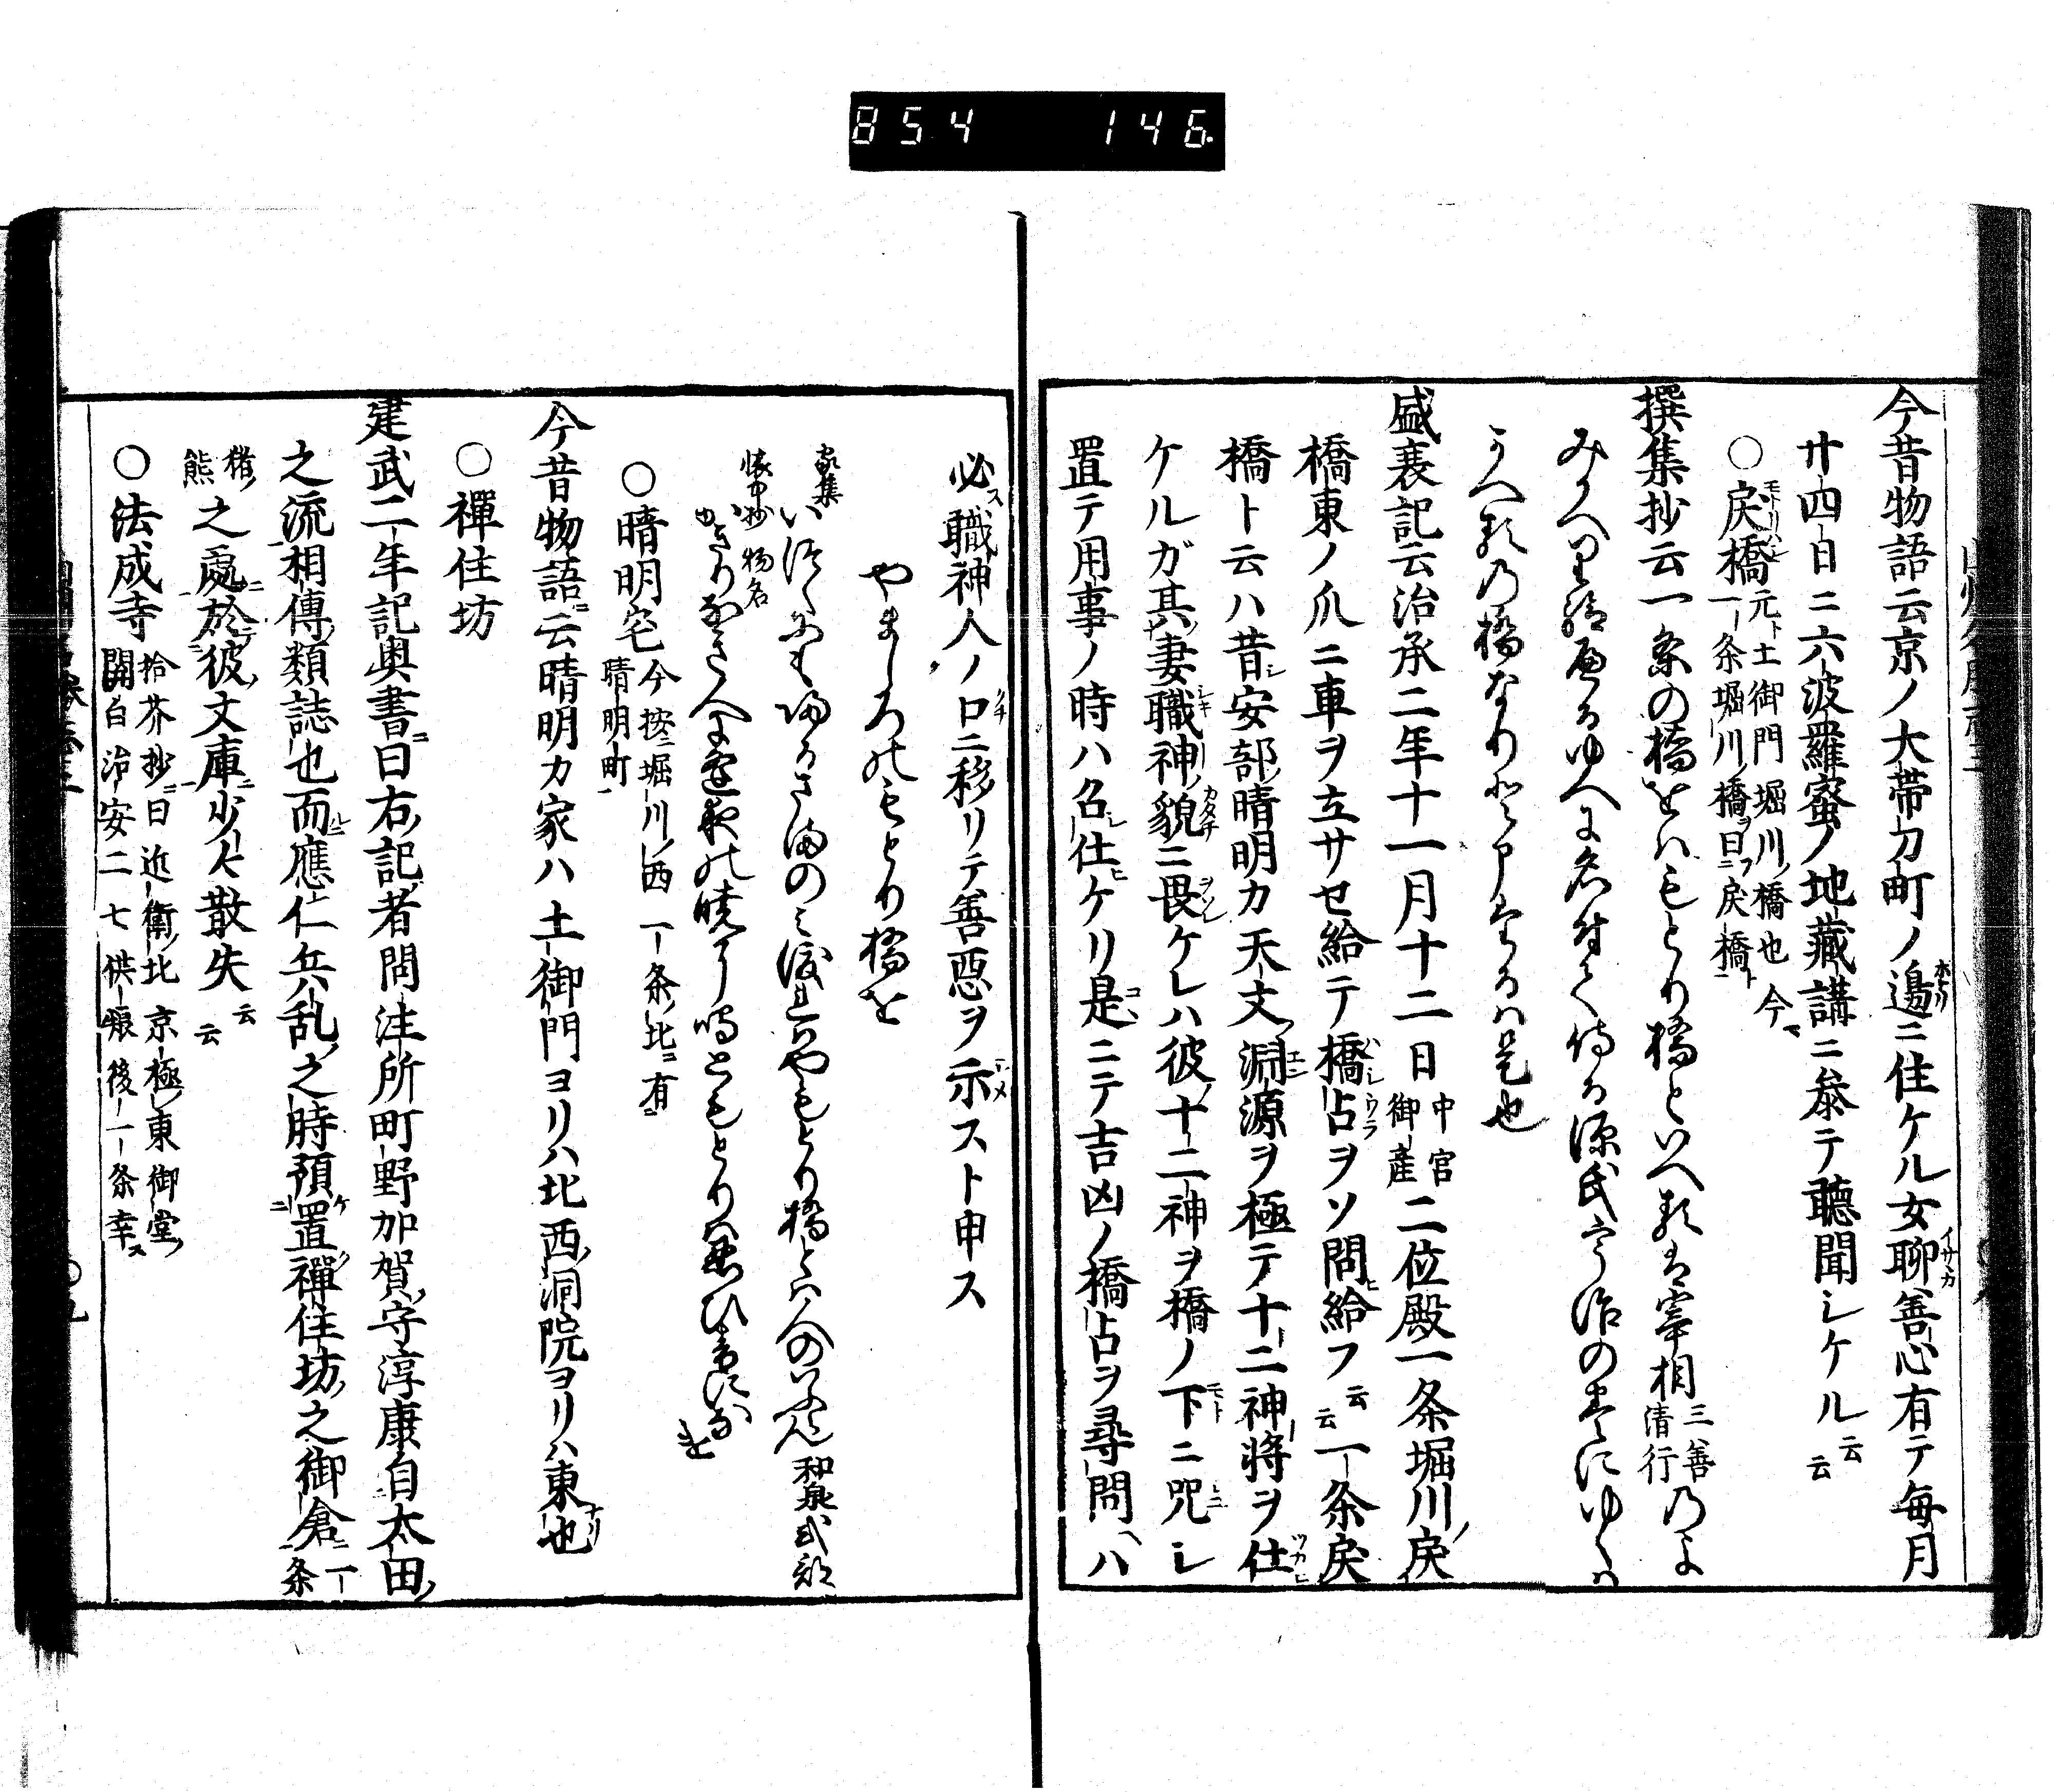 854 146
今昔物語云京ノ大帯刀町ノ邊ニ住ケル女聊善心有テ毎月
廿四日ニ六波羅蜜ノ地藏講ニ叅テ聽聞シケル云云
○戻橋 元ト土御門堀川ノ橋也今
一条堀川ノ橋ヲ曰フ戻橋ト
撰集抄云一条の橋をはもとり橋といへる宰相三善清行のよ
みかへり給へるゆへに名付て侍る源氏宇治の巻にゆくは
かへるの橋なりと申たるは是也
盛衰記云治承二年十一月十二日中宮御産二位殿一条堀川ノ戻
橋東ノ爪ニ車ヲ立サセ給テ橋占ヲソ問給フ云云一条戻
橋ト云ハ昔シ安部ノ晴明カ天文ノ淵源ヲ極テ十二神將ヲ仕
ケルガ其ノ妻職神ノ貌ニ畏ケレハ彼ノ十二神ヲ橋ノ下ニ咒シ
置テ用事ノ時ハ召シ仕ケリ是ニテ吉凶ノ橋占ヲ尋問ハ
必ス職神人ノ口ニ移リテ善惡ヲ示スト申ス
やましろのもとり橋を
家集
いつくにも帰るさまのみ渡ればやもとり橋とは人のいふらん 和泉式部
懐中抄 物名
○晴明宅 今按ニ堀川ノ西一条ノ北ニ有
晴明町
今昔物語ニ云晴明カ家ハ土御門ヨリハ北西ノ洞院ヨリハ東也
○禪住坊
建武二年記奥書ニ曰右ノ記者問注所町野加賀ノ守淳康自太田
之流相傳ノ類誌也而應仁兵乱之時預置禪住坊之御倉一条
猪熊之處於彼ノ文庫少々散失云云
○法成寺 拾芥抄ニ曰近衛ノ北京極ノ東御堂
関白治安二七供養後一条幸ス